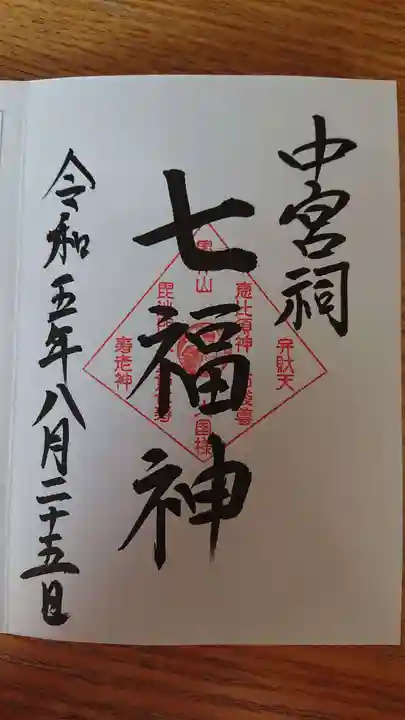 中宮祠
七福神
令和五年八月二十五日
弁財天
恵比寿神
山
毘沙
寿老神